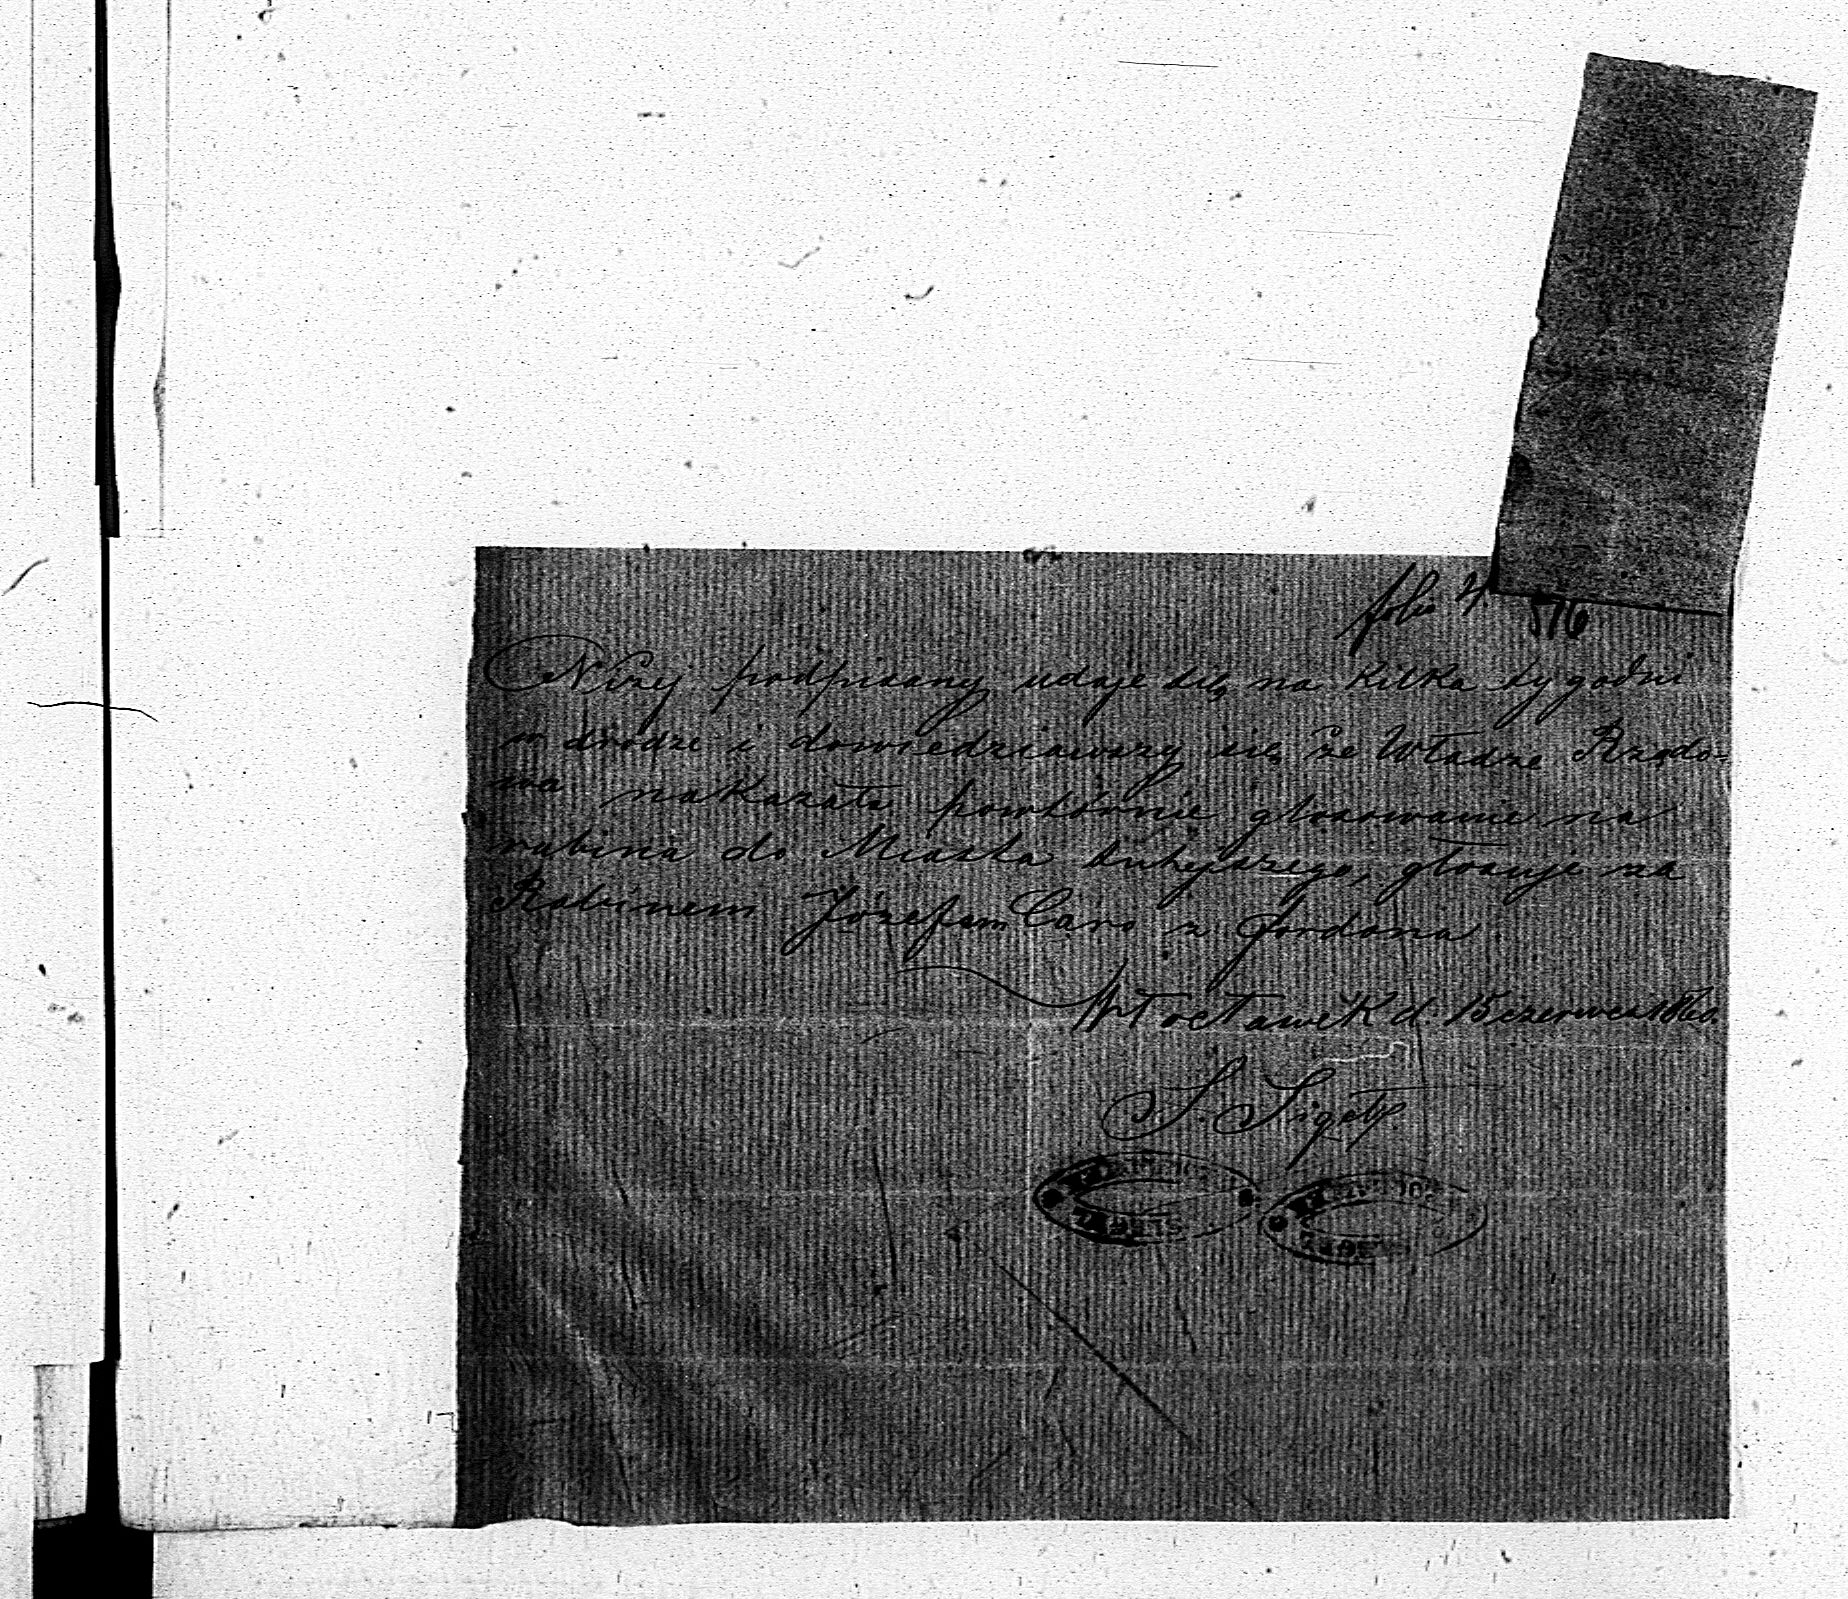 folio 4.
576
Niżej podpisany udaje się na kilka tygodni
w drodze i dowiedziawszy się że Władze Rządo-
wa nakazała powtórnie głosowanie na
rabina do Miasta tutejszego, głosuje za
Rabinem Józefem Caro z Fordona.
Włocławek d 15 czerwca 1860.